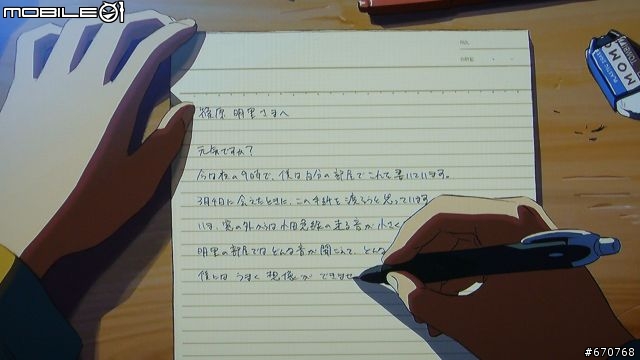 MOBILE01
NO.
DATE
篠原 明里さまへ
元気ですか?
今は夜の9時で、僕は自分の部屋でこれを書いています。
3月4日に会うときに、この手紙を渡そうと思っています
いま、窓の外からは小田急線の走る音が小さく
明里の部屋ではどんな音が聞こえて、どんな
僕にはうまく想像ができませ
#670768